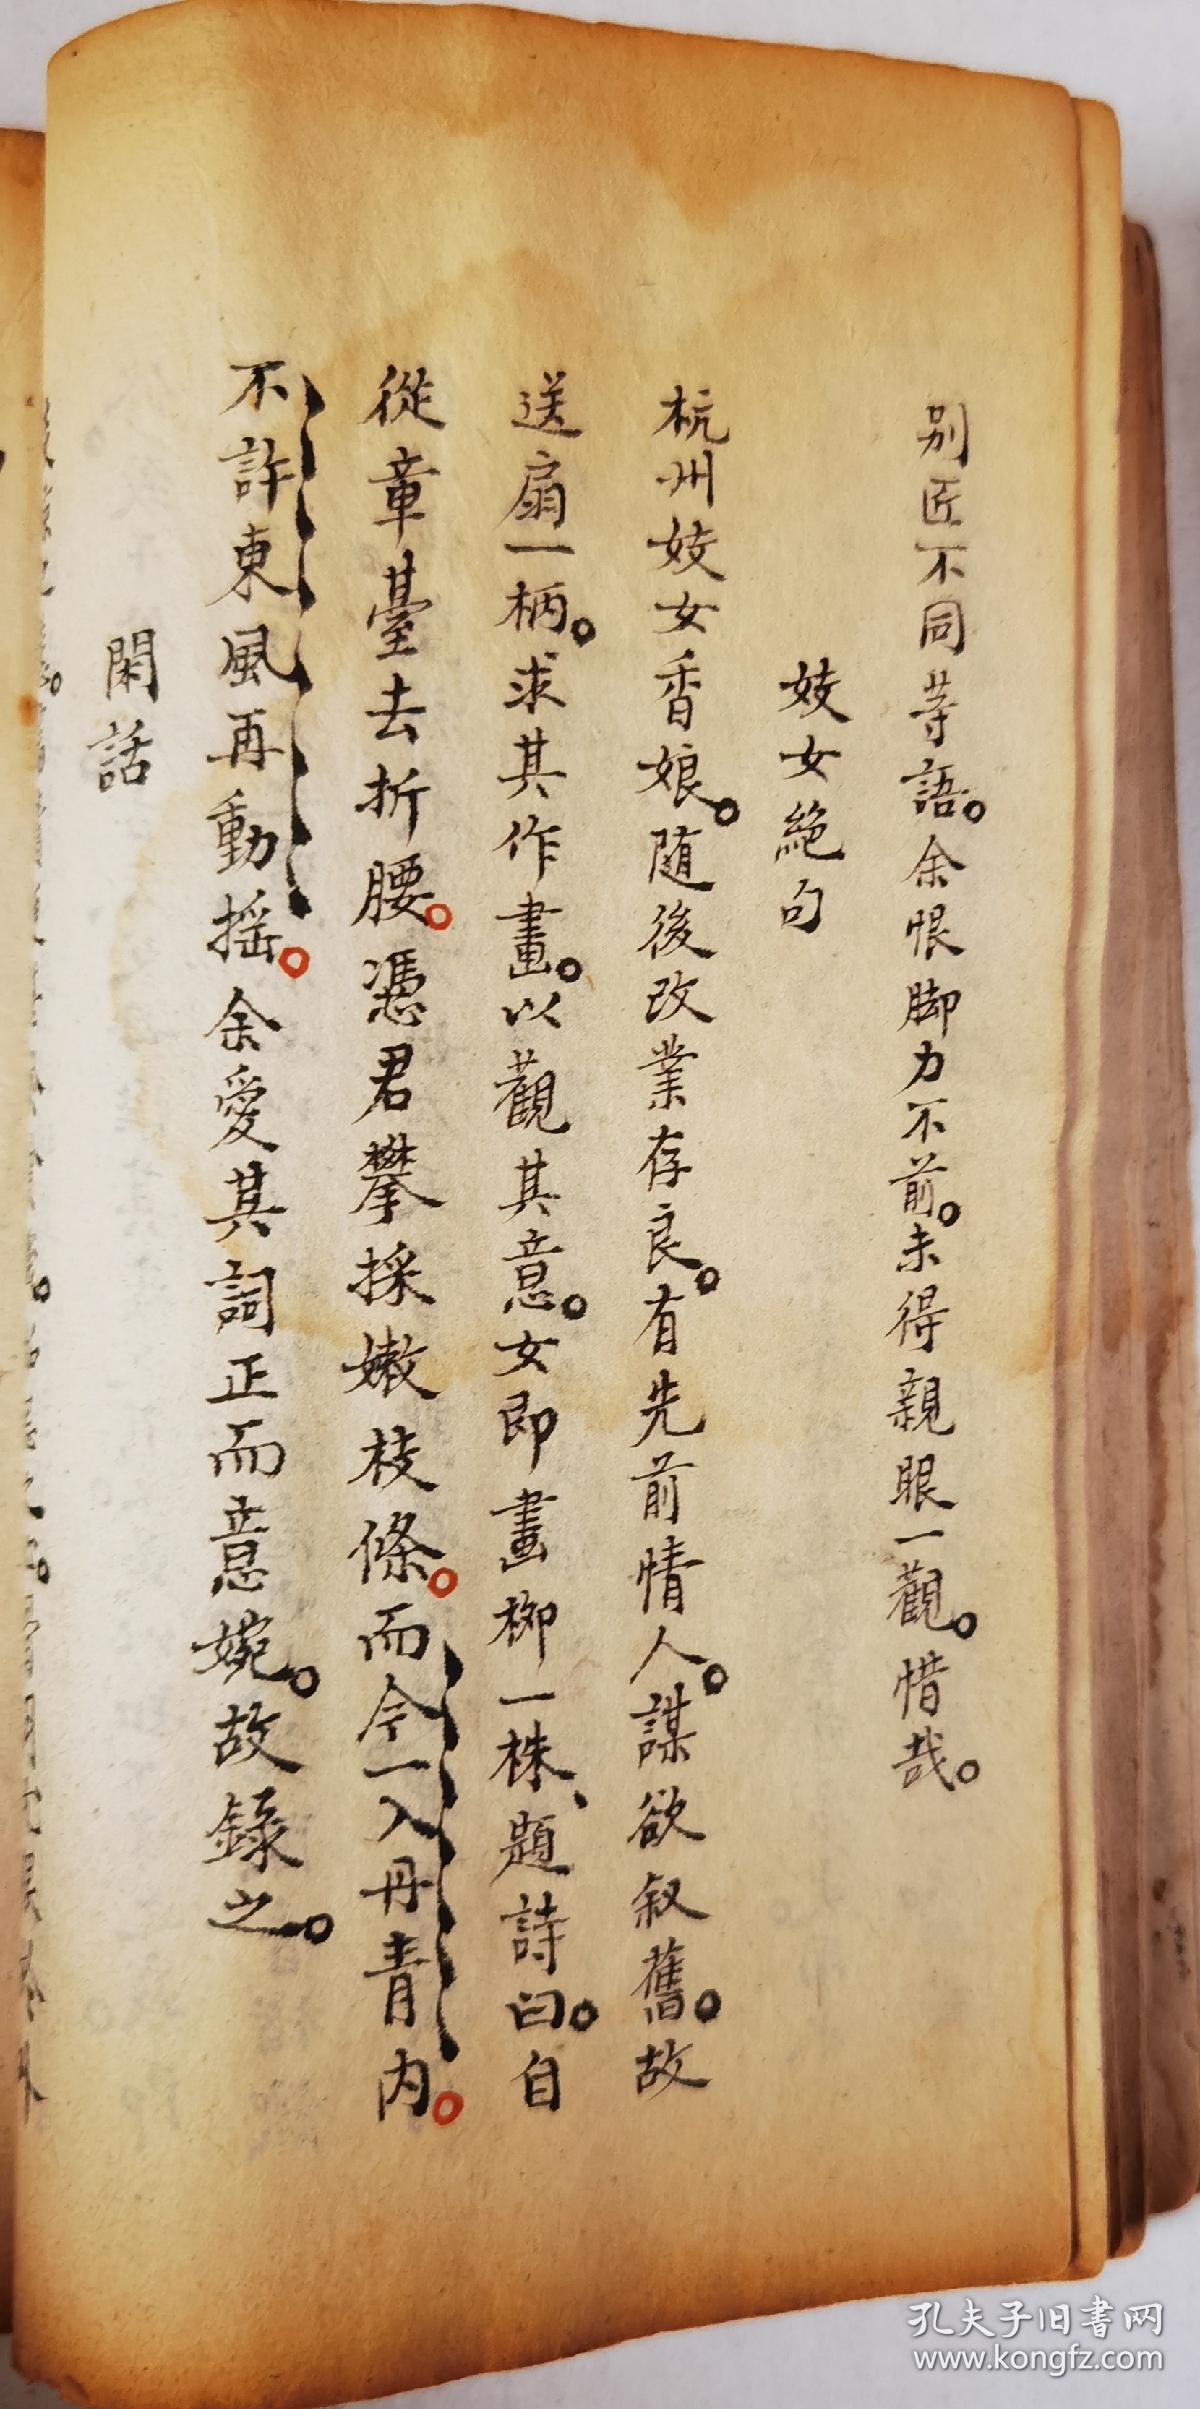 別匠不同等語。余恨脚力不前。未得親眼一觀。惜哉。
妓女絕句
杭州妓女香娘。随後改業存良。有先前情人。謀欲叙舊。故
送扇一柄。求其作畫。以觀其意。女即畫柳一株、題詩曰。自
從章臺去折腰。憑君攀採嫩枝條。而今一入丹青内。
不許東風再動搖。余愛其詞正而意婉。故錄之。
閑話
孔夫子旧書网
www.kongfz.com